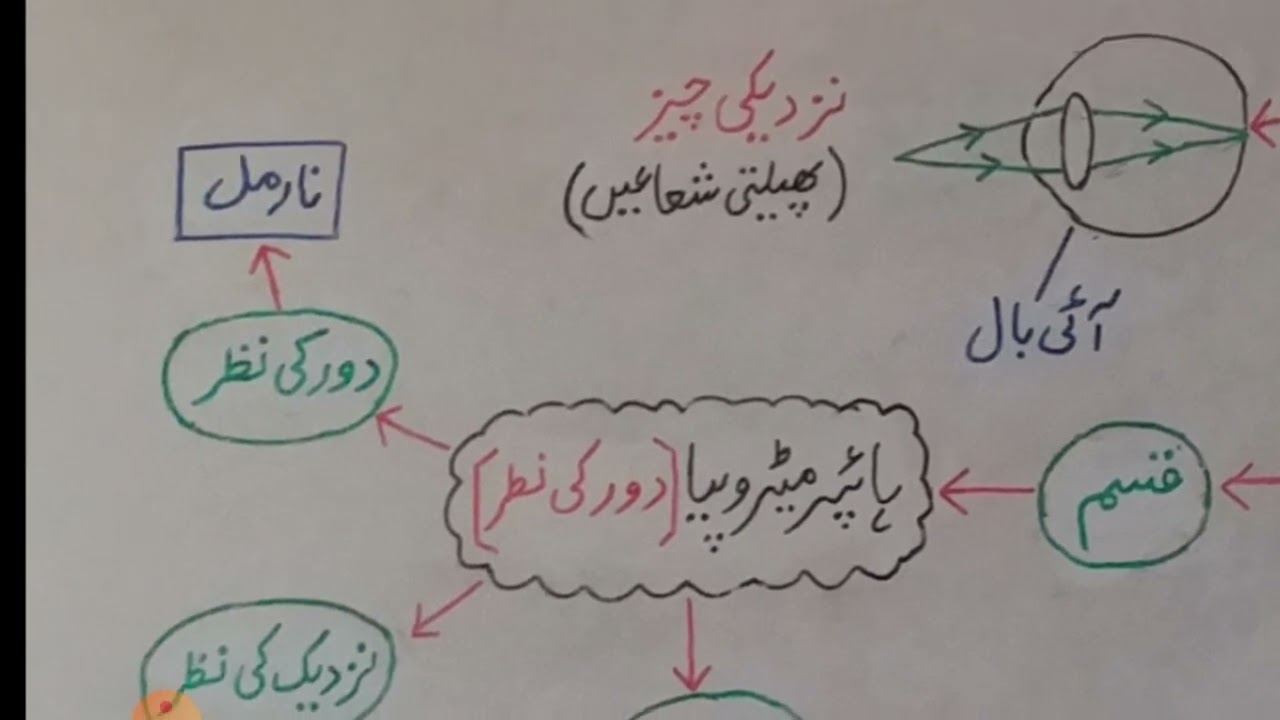 نزدیکی چیز
(پھیلتی شعاعیں)
نارمل
آئی بال
دور کی نظر
قسم
ہائپر میٹروپیا [دور کی نظر]
نزدیک کی نظر